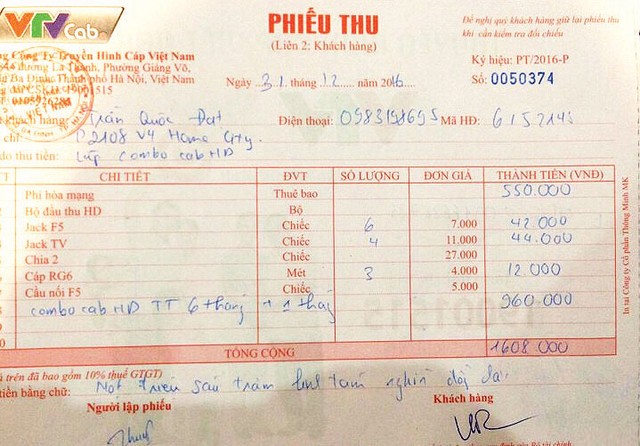 VTV Cab
PHIẾU THU
(Liên 2: Khách hàng)
Đề nghị quý khách hàng giữ lại phiếu thu
khi cần kiểm tra đối chiếu
ng Công Ty Truyền Hình Cáp Việt Nam
đường La Thành, Phường Giảng Võ,
g Ba Đình, Thành phố Hà Nội, Việt Nam
Ký hiệu: PT/2016-P
Ngày 31 tháng 12 năm 2016
Số: 0050374
hàng: Trần Quốc Đạt Điện thoại: Mã HĐ:
P2108 V4 Home City.
do thu tiền: Lắp combo cab HD
TT CHI TIẾT ĐVT SỐ LƯỢNG ĐƠN GIÁ THÀNH TIỀN (VNĐ)
Phí hòa mạng Thuê bao 550.000
Bộ đầu thu HD Bộ
Jack F5 Chiếc 6 7.000 42.000
Jack TV Chiếc 4 11.000 44.000
Chia 2 Chiếc 27.000
Cáp RG6 Mét 3 4.000 12 000
Cầu nối F5 Chiếc 5.000
combo cab HD TT 6 tháng + 1 tháng 960.000
TỔNG CỘNG 1608 000
á trên đã bao gồm 10% thuế GTGT)
tiền bằng chữ: Một triệu sáu trăm linh tám nghìn đồng
Người lập phiếu Khách hàng
Thuỷ
In tại Công ty Cổ phần Thông Minh MK